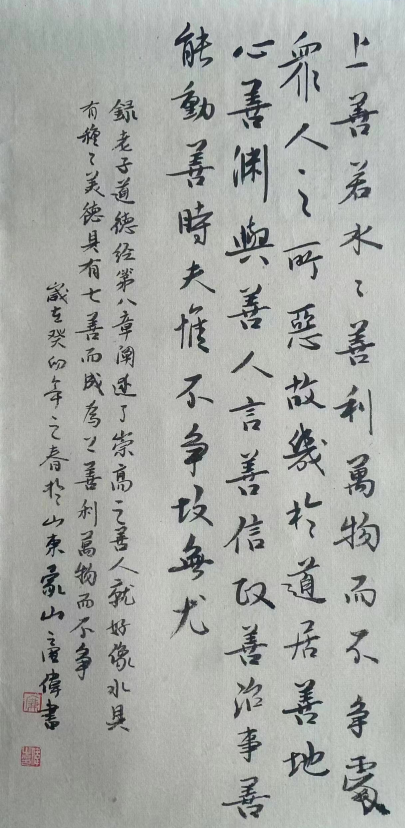 上善若水〻善利萬物而不争處
衆人之所惡故幾於道居善地
心善渊與善人言善信政善治事善
能動善時夫惟不争故無尤
録老子道德经第八章阐述了崇高之善人就好像水具
有種〻美德具有七善而成为上善利萬物而不争
歲在癸卯年之春於山東蒙山之 偉書